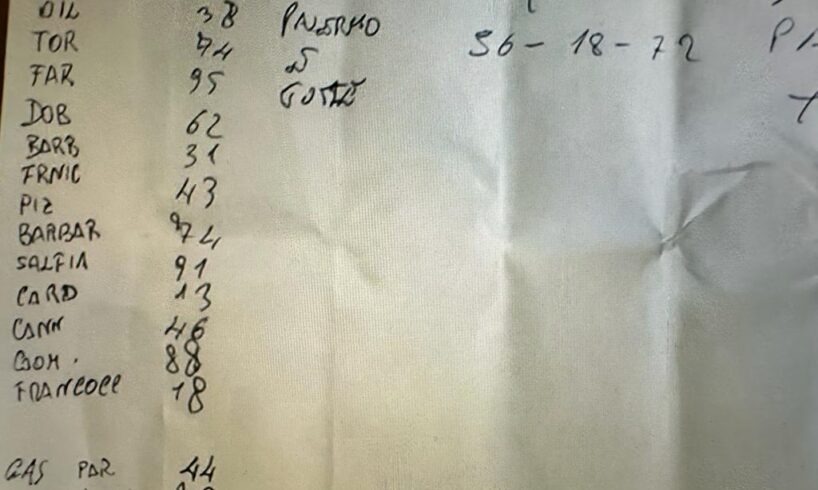 DIL 38 PALERMO
TOR 74 56 - 18 - 72 PA
FAR 95
DOB 62
BARB 31
FRNIC
PIZ 43
BARBAR 74
SALFIA 91
CARD 13
CANN 46
GOM. 88
FRANCOCC 18
GAS PAR 44